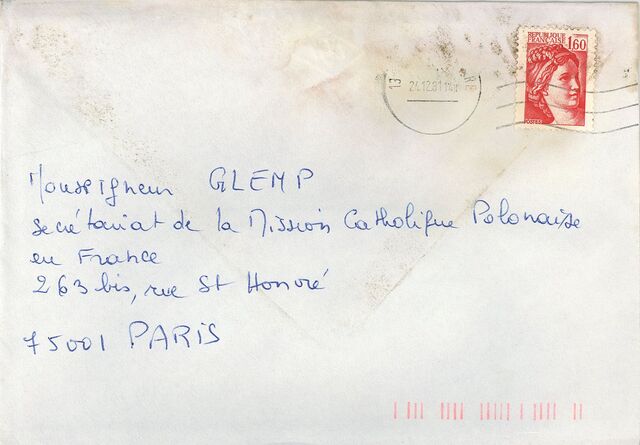 REPUBLIQUE
FRANÇAISE 1,60
24.12.81
Monseigneur GLEMP
secrétariat de la Mission Catholique Polonaise
en France
263 bis, rue St Honoré
75001 PARIS